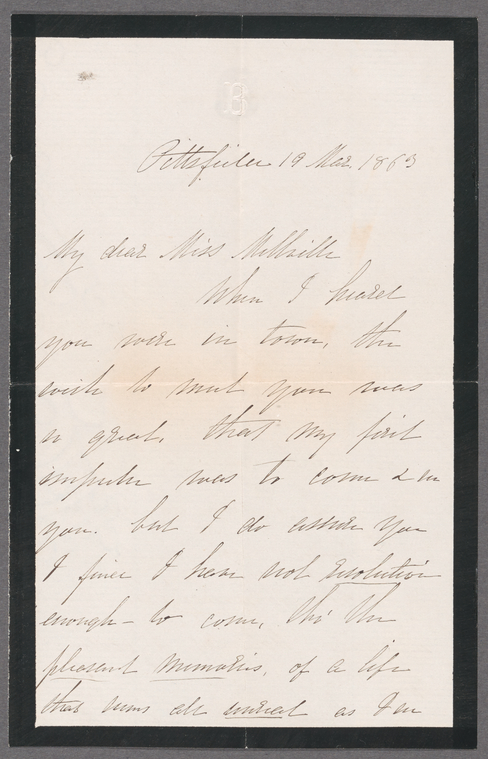 B
Pittsfield 19 Mar. 1863
My dear Miss Melville
When I heard
you were in town, the
wish to meet you was
so great, that my first
impulse was to come & see
you. but I do assure you
I find I have not resolution
enough – to come, tho' the
pleasant memories, of a life
that seems all unreal as I